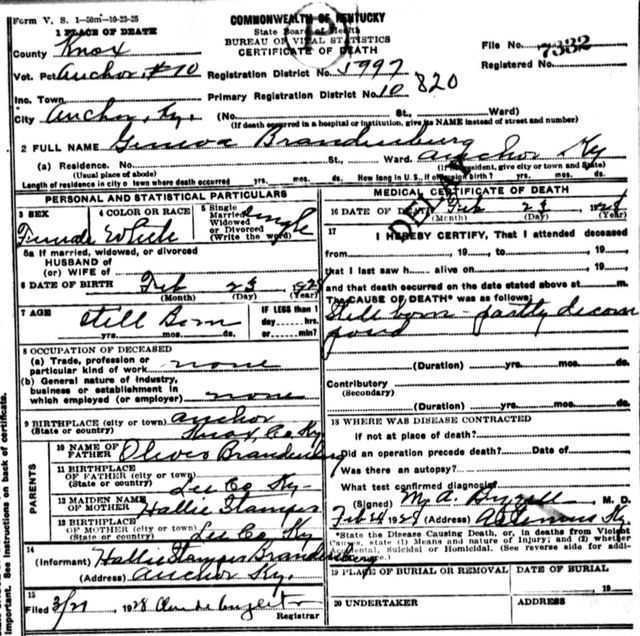 Form V. S. 1—50m—10-23-25
COMMONWEALTH OF KENTUCKY
State Board of Health
BUREAU OF VITAL STATISTICS
CERTIFICATE OF DEATH
1 PLACE OF DEATH
County Knox
File No. 7332
Registered No.
Vot. Pct. Anchor #10 Registration District No. 1997
Inc. Town Primary Registration District No. 10 820
City Anchor, Ky. (No. St., Ward)
(If death occurred in a hospital or institution, give its NAME instead of street and number)
2 FULL NAME Geneva Brandenburg
(a) Residence. No. St., Ward. Anchor Ky
(Usual place of abode) (If nonresident, give city or town and State)
Length of residence in city or town where death occurred yrs. mos. ds. How long in U. S., if of foreign birth? yrs. mos. ds.
PERSONAL AND STATISTICAL PARTICULARS
3 SEX Female
4 COLOR OR RACE White
5 Single Married Widowed or Divorced (Write the word) Single
5a If married, widowed, or divorced
HUSBAND of
(or) WIFE of
6 DATE OF BIRTH Feb 23 1928
(Month) (Day) (Year)
7 AGE Still Born
yrs. mos. ds.
IF LESS than 1
day hrs.
or min?
8 OCCUPATION OF DECEASED
(a) Trade, profession or
particular kind of work none
(b) General nature of industry,
business or establishment in
which employed (or employer) none
9 BIRTHPLACE (city or town) Anchor
(State or country) Knox, Co Ky
PARENTS
10 NAME OF
FATHER Oliver Brandenburg
11 BIRTHPLACE
OF FATHER (city or town)
(State or country) Lee Co Ky
12 MAIDEN NAME
OF MOTHER Hallie Stamper
13 BIRTHPLACE
OF MOTHER (city or town)
(State or country) Lee Co Ky
14
(Informant) Hallie Stamper Brandenburg
(Address) Anchor Ky.
15
Filed 3/21 1928
Registrar
MEDICAL CERTIFICATE OF DEATH
16 DATE OF DEATH Feb 23 1928
(Month) (Day) (Year)
17 I HEREBY CERTIFY, That I attended deceased
from , 19 , to , 19
that I last saw h alive on , 19
and that death occurred on the date stated above at m.
The CAUSE OF DEATH* was as follows:
Still born – partly decom
posed
(Duration) yrs. mos. ds.
Contributory
(Secondary)
(Duration) yrs. mos. ds.
18 WHERE WAS DISEASE CONTRACTED
If not at place of death?
Did an operation precede death? Date of
Was there an autopsy?
What test confirmed diagnosis?
(Signed) M. A. , M. D.
Feb 24 1928 (Address) Ky.
*State the Disease Causing Death, or, in deaths from Violent
Causes, state (1) Means and nature of Injury; and (2) whether
Accidental, Suicidal or Homicidal. (See reverse side for addi-
19 PLACE OF BURIAL OR REMOVAL DATE OF BURIAL
20 UNDERTAKER ADDRESS
important. See instructions on back of certificate.